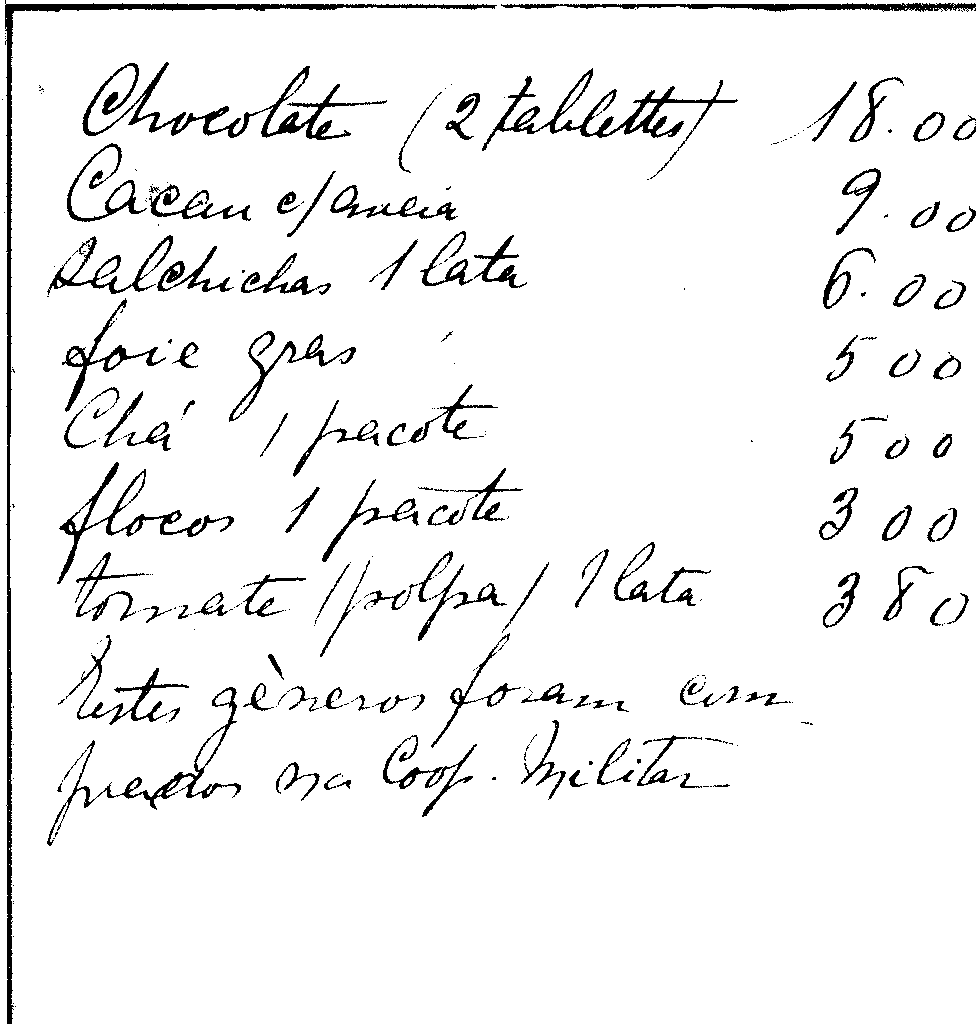 Chocolate (2 tablettes) 18.00
Cacau c/ aveia 9.00
Salchichas 1 lata 6.00
foie gras 500
Chá 1 pacote 500
flocos 1 pacote 300
tomate /polpa/ 1 lata 380
Estes gèneros foram com-
prados na Coop. Militar